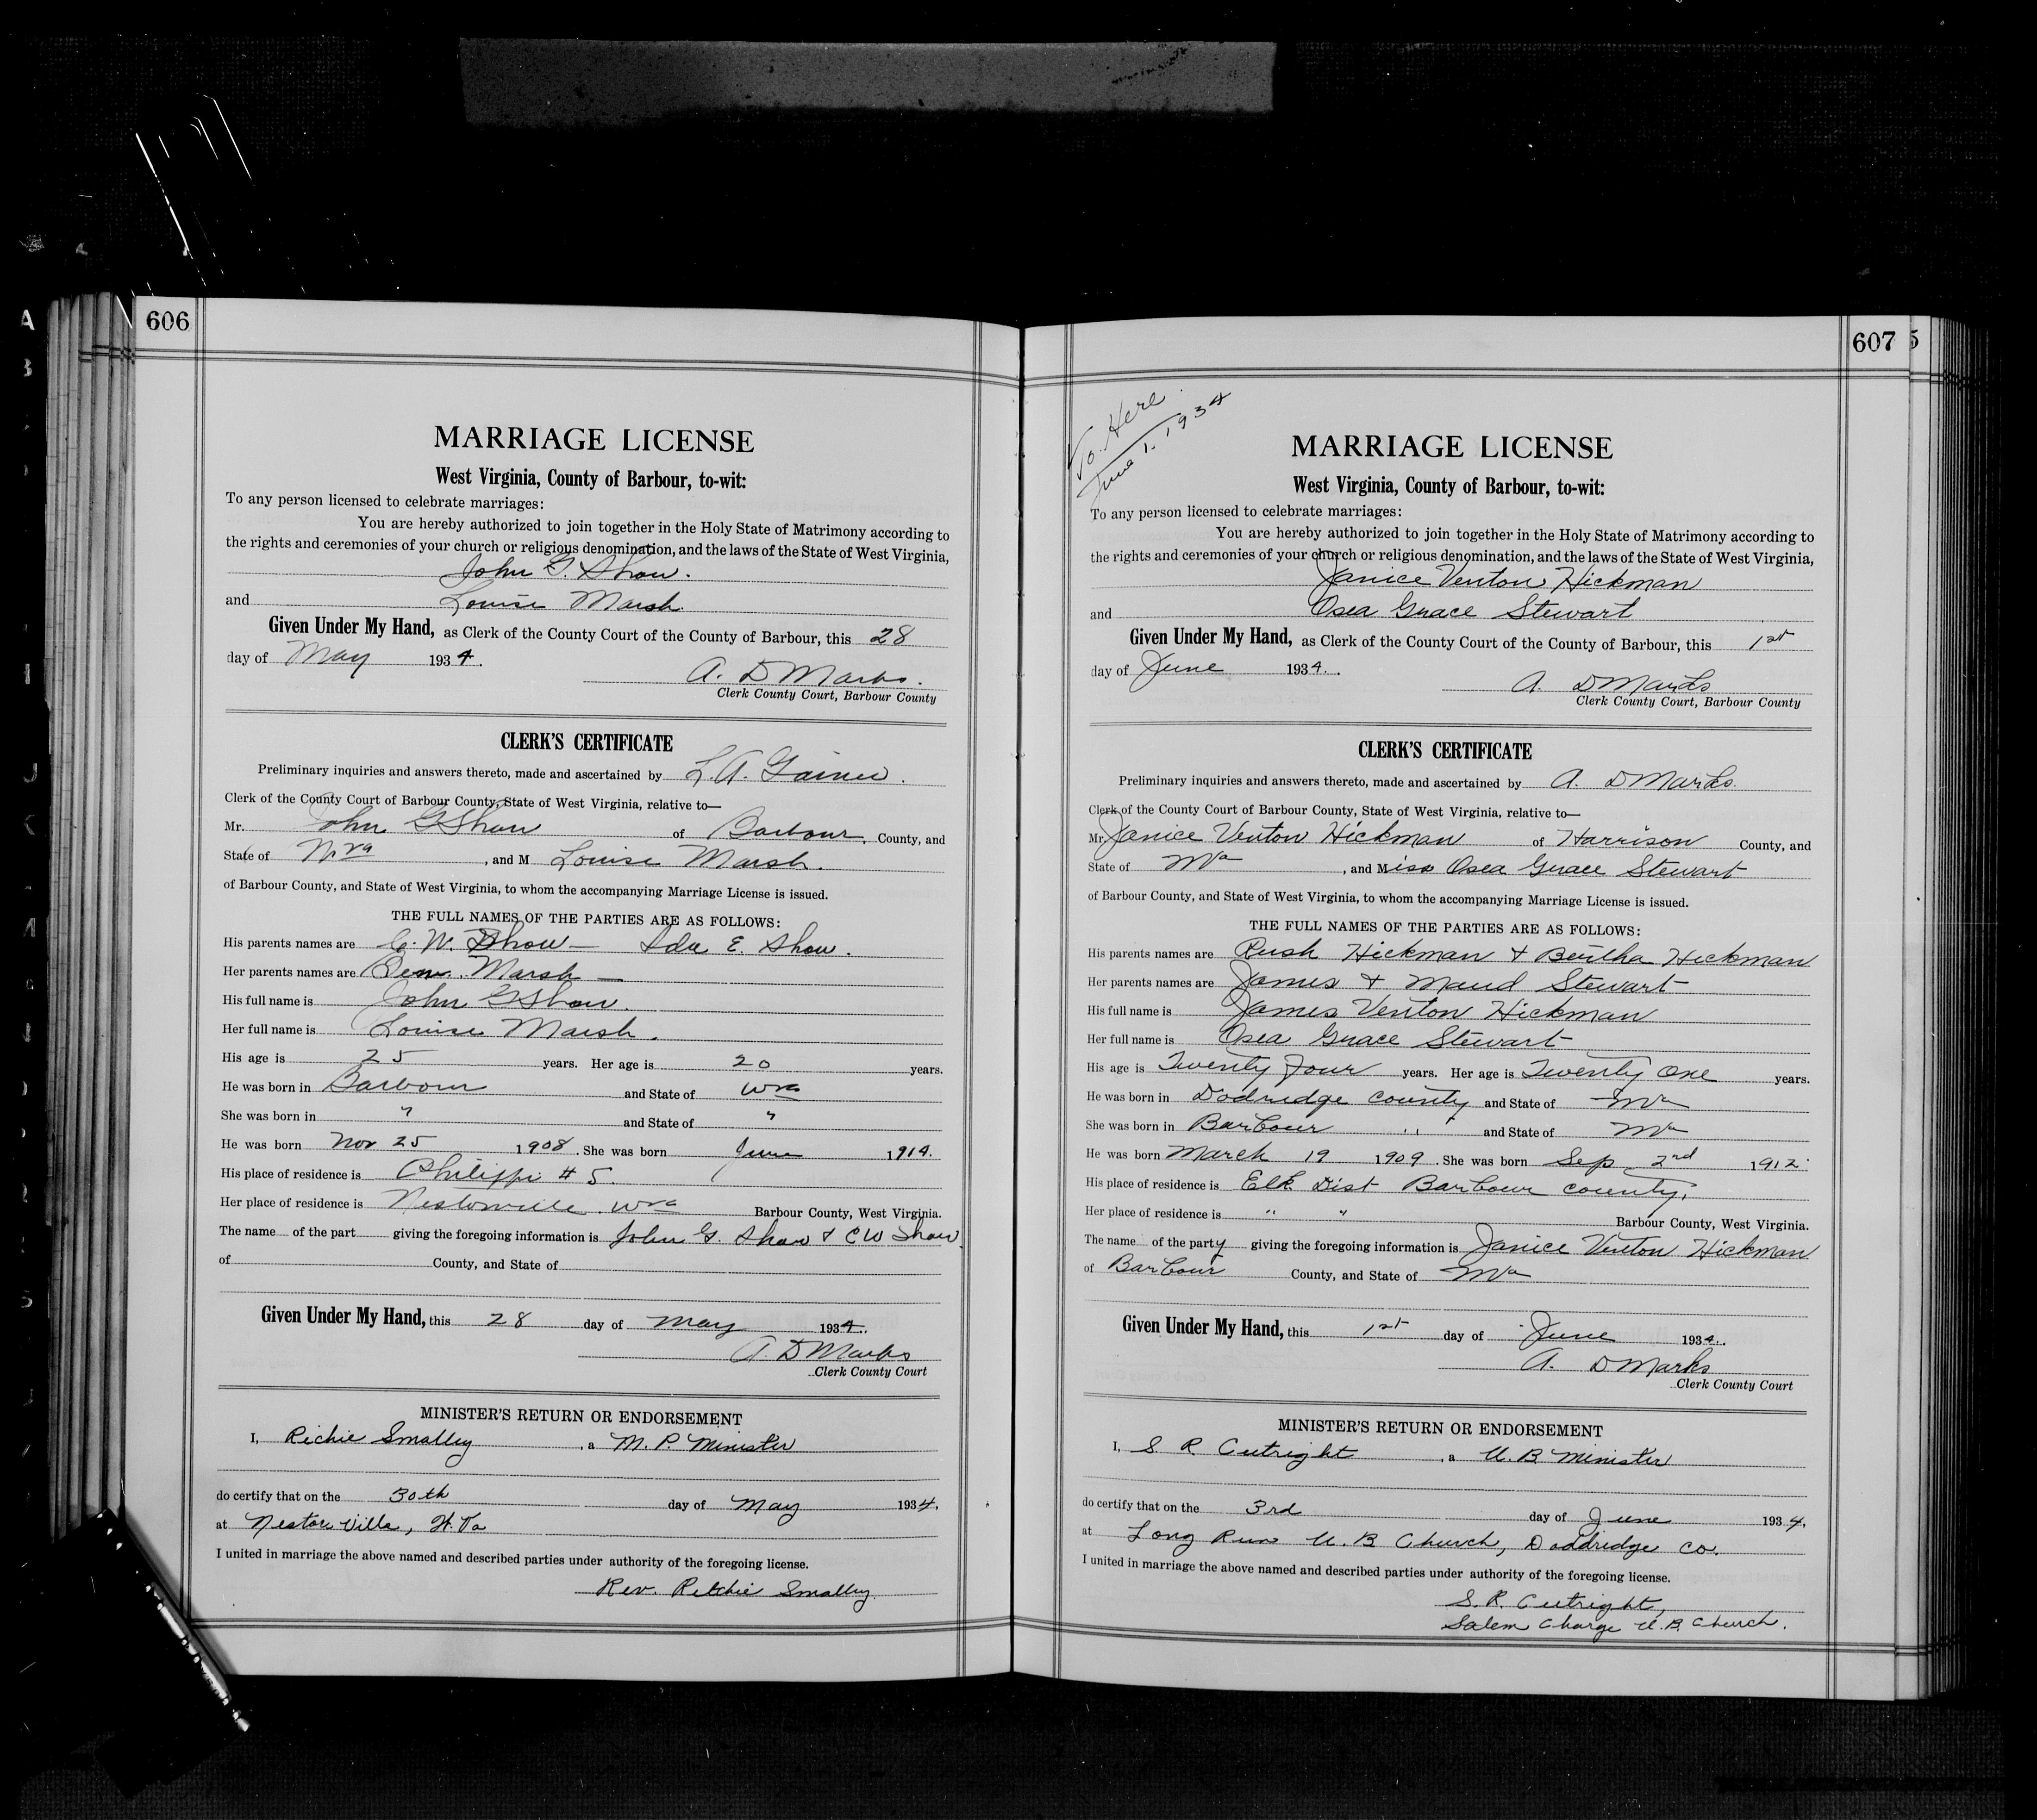 606
MARRIAGE LICENSE
West Virginia, County of Barbour, to-wit:
To any person licensed to celebrate marriages:
You are hereby authorized to join together in the Holy State of Matrimony according to
the rights and ceremonies of your church or religious denomination, and the laws of the State of West Virginia,
John G. Shaw.
and Louise Marsh
Given Under My Hand, as Clerk of the County Court of the County of Barbour, this 28
day of May 1934.
A. D Marks.
Clerk County Court, Barbour County
CLERK'S CERTIFICATE
Preliminary inquiries and answers thereto, made and ascertained by L. A. Gainer.
Clerk of the County Court of Barbour County, State of West Virginia, relative to—
Mr. John G Shaw of Barbour, County, and
State of W.Va, and M Louise Marsh.
of Barbour County, and State of West Virginia, to whom the accompanying Marriage License is issued.
THE FULL NAMES OF THE PARTIES ARE AS FOLLOWS:
His parents names are C. W. Shaw — Ida E. Shaw.
Her parents names are Marsh —
His full name is John G Shaw.
Her full name is Louise Marsh.
His age is 25 years. Her age is 20 years.
He was born in Barbour and State of Wva
She was born in " and State of "
He was born Nov 25 1908. She was born June 1914.
His place of residence is Philippi # 5.
Her place of residence is Nestorville Wva Barbour County, West Virginia.
The name of the part giving the foregoing information is John G. Shaw & C W Shaw
of County, and State of
Given Under My Hand, this 28 day of May 1934.
A. D Marks
Clerk County Court
MINISTER'S RETURN OR ENDORSEMENT
I, Richie Smalley, a M. P. Minister
do certify that on the 30th day of May 1934,
at Nestorville, W. Va
I united in marriage the above named and described parties under authority of the foregoing license.
Rev. Ritchie Smalley
607
To Here
June 1, 1934
MARRIAGE LICENSE
West Virginia, County of Barbour, to-wit:
To any person licensed to celebrate marriages:
You are hereby authorized to join together in the Holy State of Matrimony according to
the rights and ceremonies of your church or religious denomination, and the laws of the State of West Virginia,
Janice Venton Hickman
and Osea Grace Stewart
Given Under My Hand, as Clerk of the County Court of the County of Barbour, this 1st
day of June 1934.
A. D Marks
Clerk County Court, Barbour County
CLERK'S CERTIFICATE
Preliminary inquiries and answers thereto, made and ascertained by A. D Marks.
Clerk of the County Court of Barbour County, State of West Virginia, relative to—
Mr. Janice Venton Hickman of Harrison County, and
State of Wva, and Miss Osea Grace Stewart
of Barbour County, and State of West Virginia, to whom the accompanying Marriage License is issued.
THE FULL NAMES OF THE PARTIES ARE AS FOLLOWS:
His parents names are Rush Hickman & Bertha Hickman
Her parents names are James & Maud Stewart
His full name is James Venton Hickman
Her full name is Osea Grace Stewart
His age is Twenty Four years. Her age is Twenty One years.
He was born in Dodridge County and State of Wva
She was born in Barbour " and State of Wva
He was born March 19 1909. She was born Sep 2nd 1912.
His place of residence is Elk Dist Barbour county.
Her place of residence is " " Barbour County, West Virginia.
The name of the party giving the foregoing information is Janice Venton Hickman
of Barbour County, and State of Wva
Given Under My Hand, this 1st day of June 1934.
A. D Marks
Clerk County Court
MINISTER'S RETURN OR ENDORSEMENT
I, S R Cutright, a U. B. Minister
do certify that on the 3rd day of June 1934,
at Long Run U. B Church, Doddridge Co.
I united in marriage the above named and described parties under authority of the foregoing license.
S. R. Cutright,
Salem Charge U. B. Church.